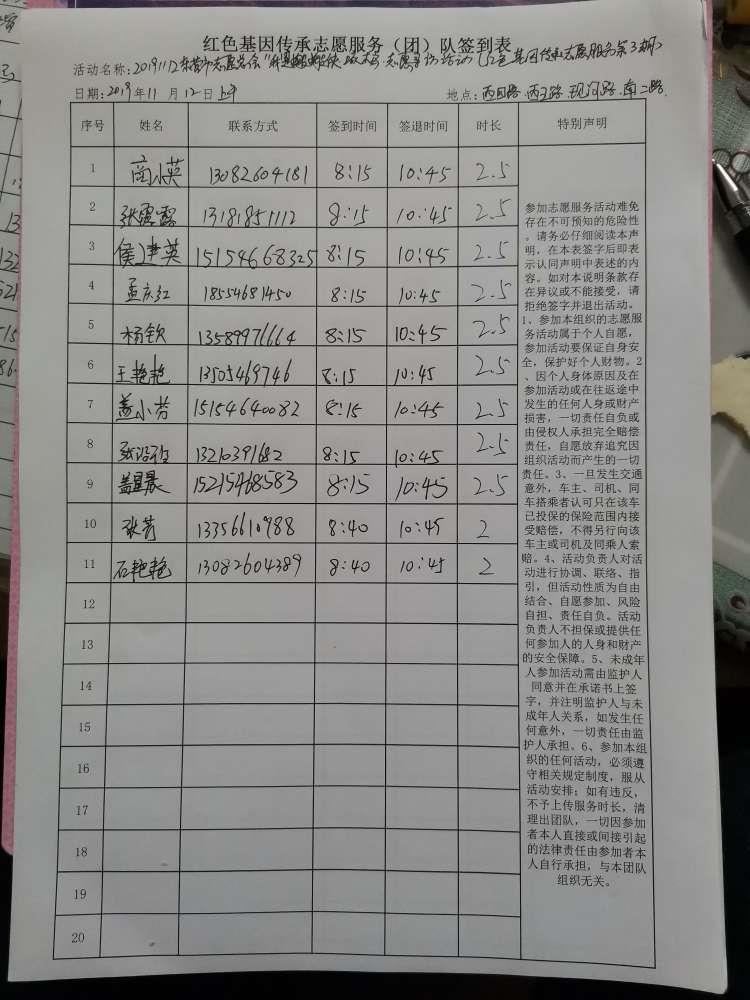 红色基因传承志愿服务（团）队签到表
活动名称：20191112 志愿 活动（红色基因传承志愿服务第3期）
日期：2019年11月12日上午 地点：西四路.西五路.
序号 姓名 联系方式 签到时间 签退时间 时长 特别声明
1 商小英 13082604181 8:15 10:45 2.5
2 张霞 13181851112 8:15 10:45 2.5
3 侯 英 15154668325 8:15 10:45 2.5
4 孟庆红 18554681450 8:15 10:45 2.5
5 杨钦 13589971664 8:15 10:45 2.5
6 王艳艳 13505469746 8:15 10:45 2.5
7 盖小芳 15154640082 8:15 10:45 2.5
8 张 13210391682 8:15 10:45 2.5
9 盖星晨 15215468583 8:15 10:45 2.5
10 张芳 13356610988 8:40 10:45 2
11 石艳艳 13082604389 8:40 10:45 2
12
13
14
15
16
17
18
19
20
参加志愿服务活动难免
存在不可预知的危险性
。请务必仔细阅读本声
明，在本表签字后即表
示认同声明中表述的内
容。如对本说明条款存
在异议或不能接受，请
拒绝签字并退出活动。
1、参加本组织的志愿服
务活动属于个人自愿，
参加活动要保证自身安
全，保护好个人财物。2
、因个人身体原因及在
参加活动或在往返途中
发生的任何人身或财产
损害，一切责任自负或
由侵权人承担完全赔偿
责任，自愿放弃追究因
组织活动而产生的一切
责任。3、一旦发生交通
意外，车主、司机、同
车搭乘者认可只在该车
已投保的保险范围内接
受赔偿，不得另行向该
车主或司机及同乘人索
赔。4、活动负责人对活
动进行协调、联络、指
引，但活动性质为自由
结合、自愿参加、风险
自担、责任自负。活动
负责人不担保或提供任
何参加人的人身和财产
的安全保障。5、未成年
人参加活动需由监护人
同意并在承诺书上签
字，并注明监护人与未
成年人关系，如发生任
何意外，一切责任由监
护人承担。6、参加本组
织的任何活动，必须遵
守相关规定制度，服从
活动安排；如有违反，
不予上传服务时长，清
理出团队，一切因参加
者本人直接或间接引起
的法律责任由参加者本
人自行承担，与本团队
组织无关。